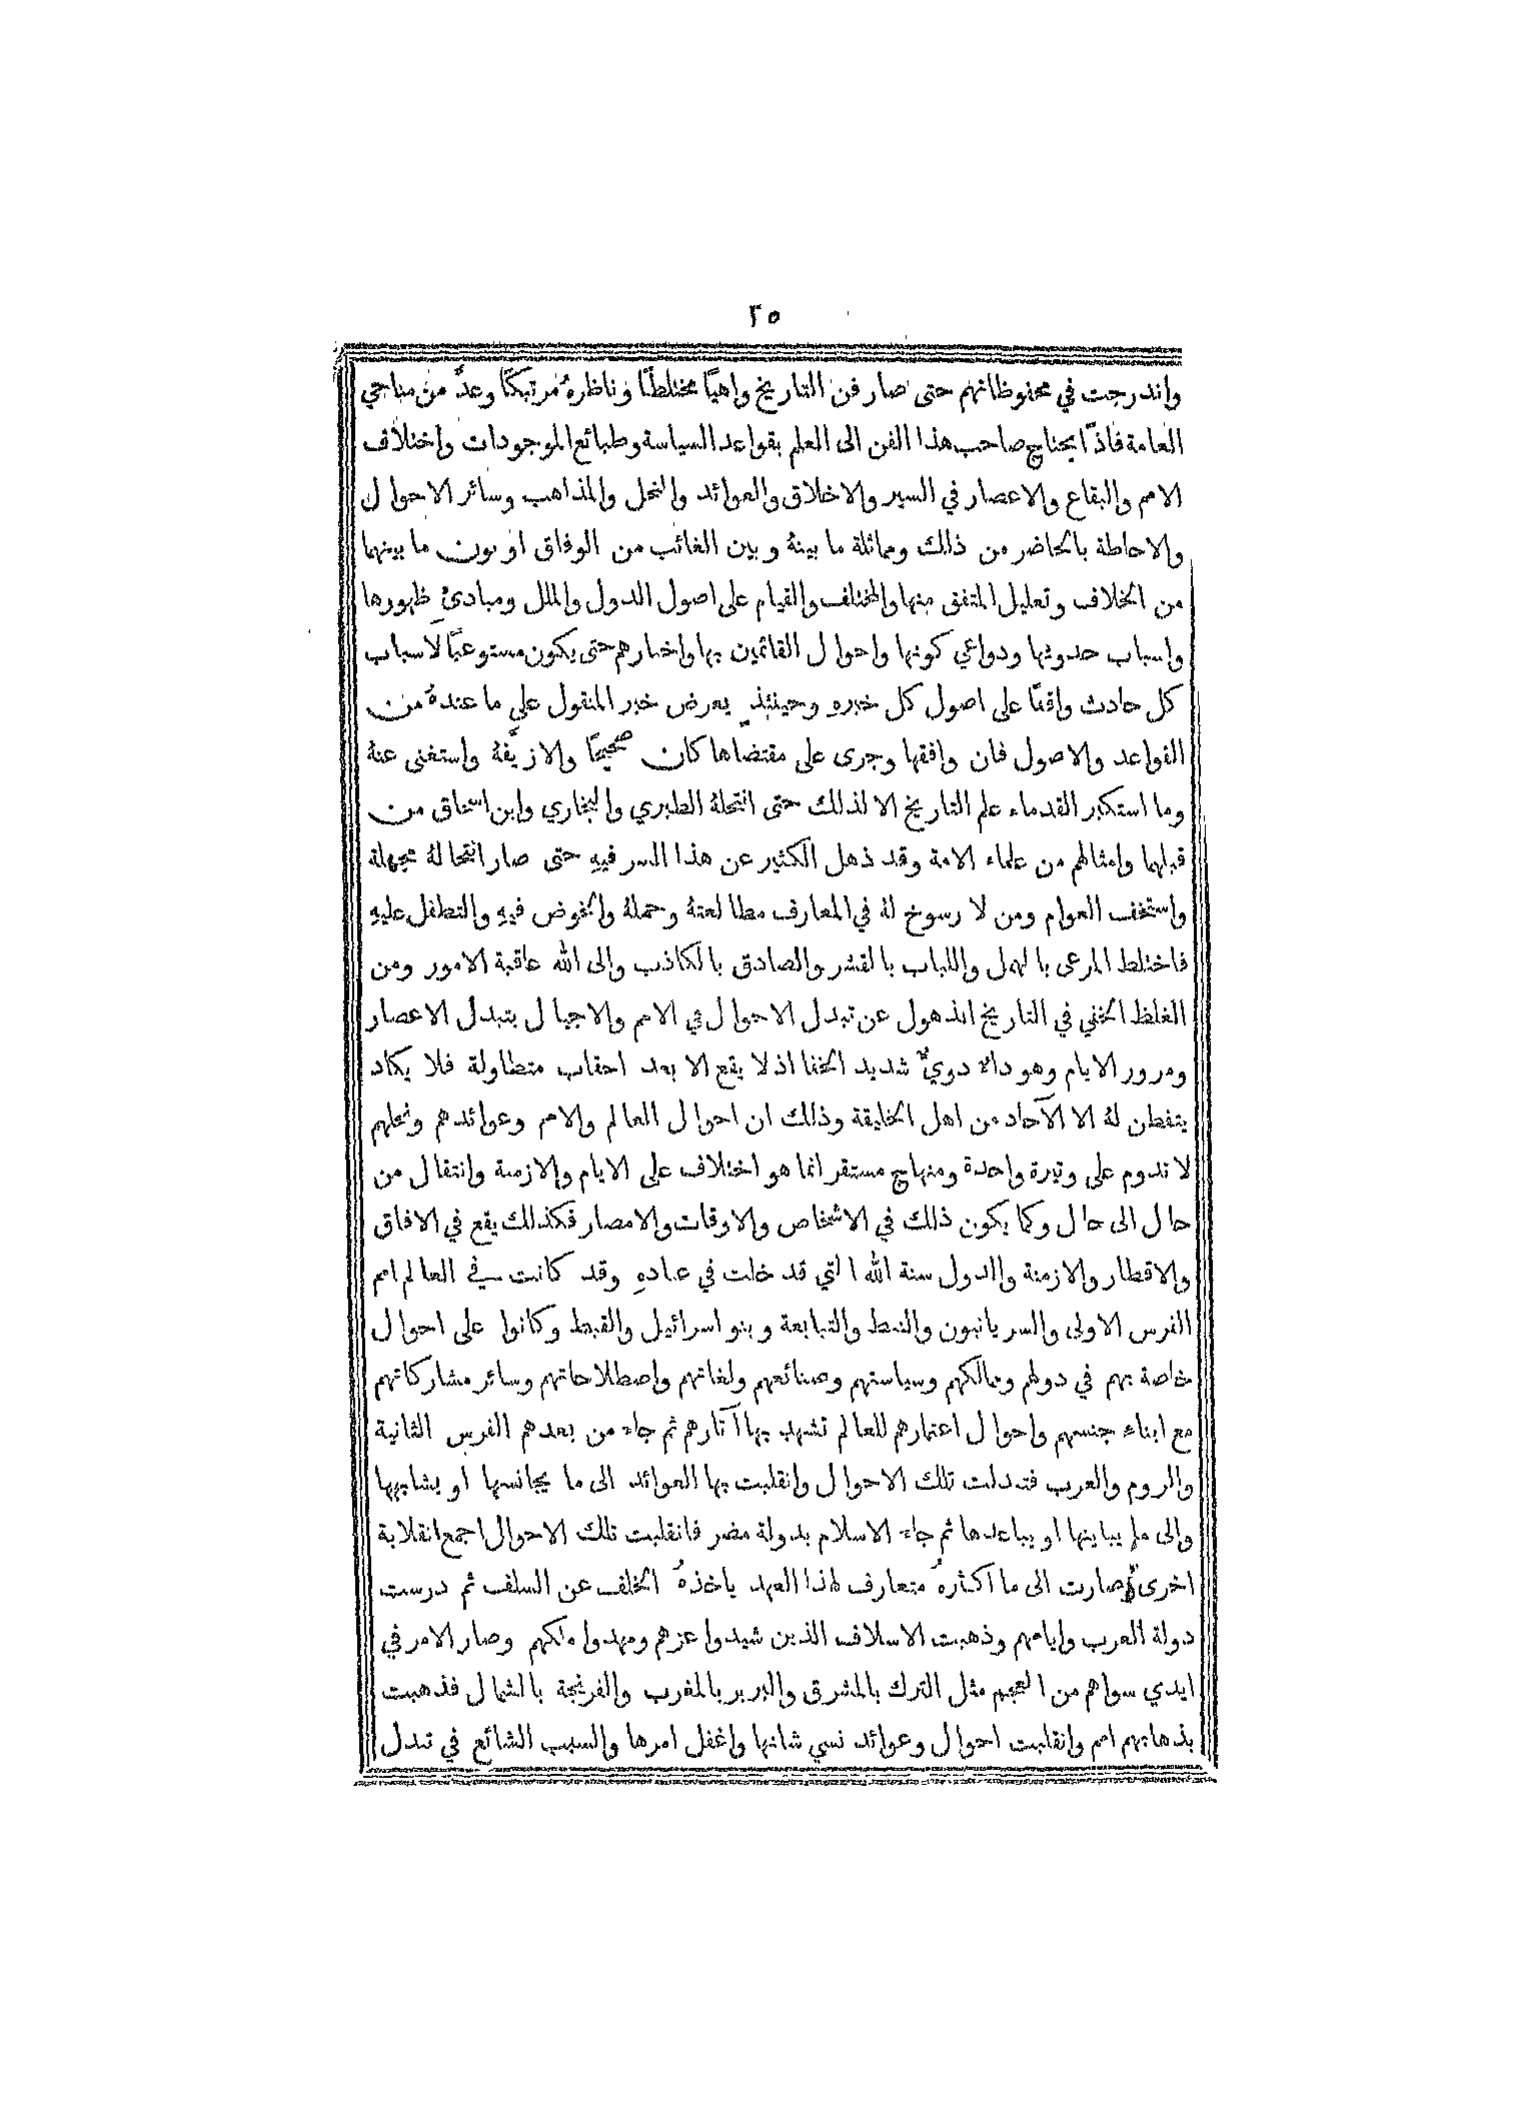 ٢٥
واندرجت في محفوظاتهم حتى صار فن التاريخ واهيًا مختلطًا وناظرهُ مرتبكًا وعدَّ من مناحي
العامة فاذًا يحتاج صاحب هذا الفن الى العلم بقواعد السياسة وطبائع الموجودات واختلاف
الامم والبقاع والاعصار في السير والاخلاق والعوائد والنحل والمذاهب وسائر الاحوال
والاحاطة بالحاضر من ذلك ومماثلة ما بينهُ وبين الغائب من الوفاق او بون ما بينهما
من الخلاف وتعليل المتفق منها والمختلف والقيام على اصول الدول والملل ومبادئِ ظهورها
واسباب حدوثها ودواعي كونها واحوال القائمين بها واخبارهم حتى يكون مستوعبًا لاسباب
كل حادث واقفًا على اصول كل خبرهِ وحينئذٍ يعرض خبر المنقول على ما عندهُ من
القواعد والاصول فان وافقها وجرى على مقتضاها كان صحيحًا والا زيَّفهُ واستغنى عنهُ
وما استكبر القدماء علم التاريخ الا لذلك حتى انتحلهُ الطبري والبخاري وابن اسحاق من
قبلهما وامثالهم من علماء الامة وقد ذهل الكثير عن هذا السر فيهِ حتى صار انتحالهُ مجهلة
واستخف العوام ومن لا رسوخ لهُ في المعارف مطالعتهُ وحملهُ والخوض فيهِ والتطفل عليهِ
فاختلط المرعى بالهمل واللباب بالقشر والصادق بالكاذب والى الله عاقبة الامور ومن
الغلط الخفي في التاريخ الذهول عن تبدل الاحوال في الامم والاجيال بتبدل الاعصار
ومرور الايام وهو داء دويٌّ شديد الخفا اذ لا يقع الا بعد احقاب متطاولة فلا يكاد
يتفطن لهُ الا الآحاد من اهل الخليقة وذلك ان احوال العالم والامم وعوائدهم ونحلهم
لا تدوم على وتيرة واحدة ومنهاج مستقر انما هو اختلاف على الايام والازمنة وانتقال من
حال الى حال وكما يكون ذلك في الاشخاص والاوقات والامصار فكذلك يقع في الافاق
والاقطار والازمنة والدول سنة الله التي قد خلت في عبادهِ وقد كانت في العالم امم
الفرس الاولى والسريانيون والنبط والتبابعة وبنو اسرائيل والقبط وكانوا على احوال
خاصة بهم في دولهم وممالكهم وسياستهم وصنائعهم ولغاتهم واصطلاحاتهم وسائر مشاركاتهم
مع ابناء جنسهم واحوال اعتمارهم للعالم تشهد بها آثارهم ثم جاء من بعدهم الفرس الثانية
والروم والعرب فتبدلت تلك الاحوال وانقلبت بها العوائد الى ما يجانسها او يشابهها
والى ما يباينها او يباعدها ثم جاء الاسلام بدولة مضر فانقلبت تلك الاحوال اجمع انقلابة
اخرى وصارت الى ما اكثرهُ متعارف لهذا العهد ياخذهُ الخلف عن السلف ثم درست
دولة العرب وايامهم وذهبت الاسلاف الذين شيدوا عزهم ومهدوا ملكهم وصار الامر في
ايدي سواهم من العجم مثل الترك بالمشرق والبربر بالمغرب والفرنجة بالشمال فذهبت
بذهابهم امم وانقلبت احوال وعوائد نسي شانها واغفل امرها والسبب الشائع في تبدل